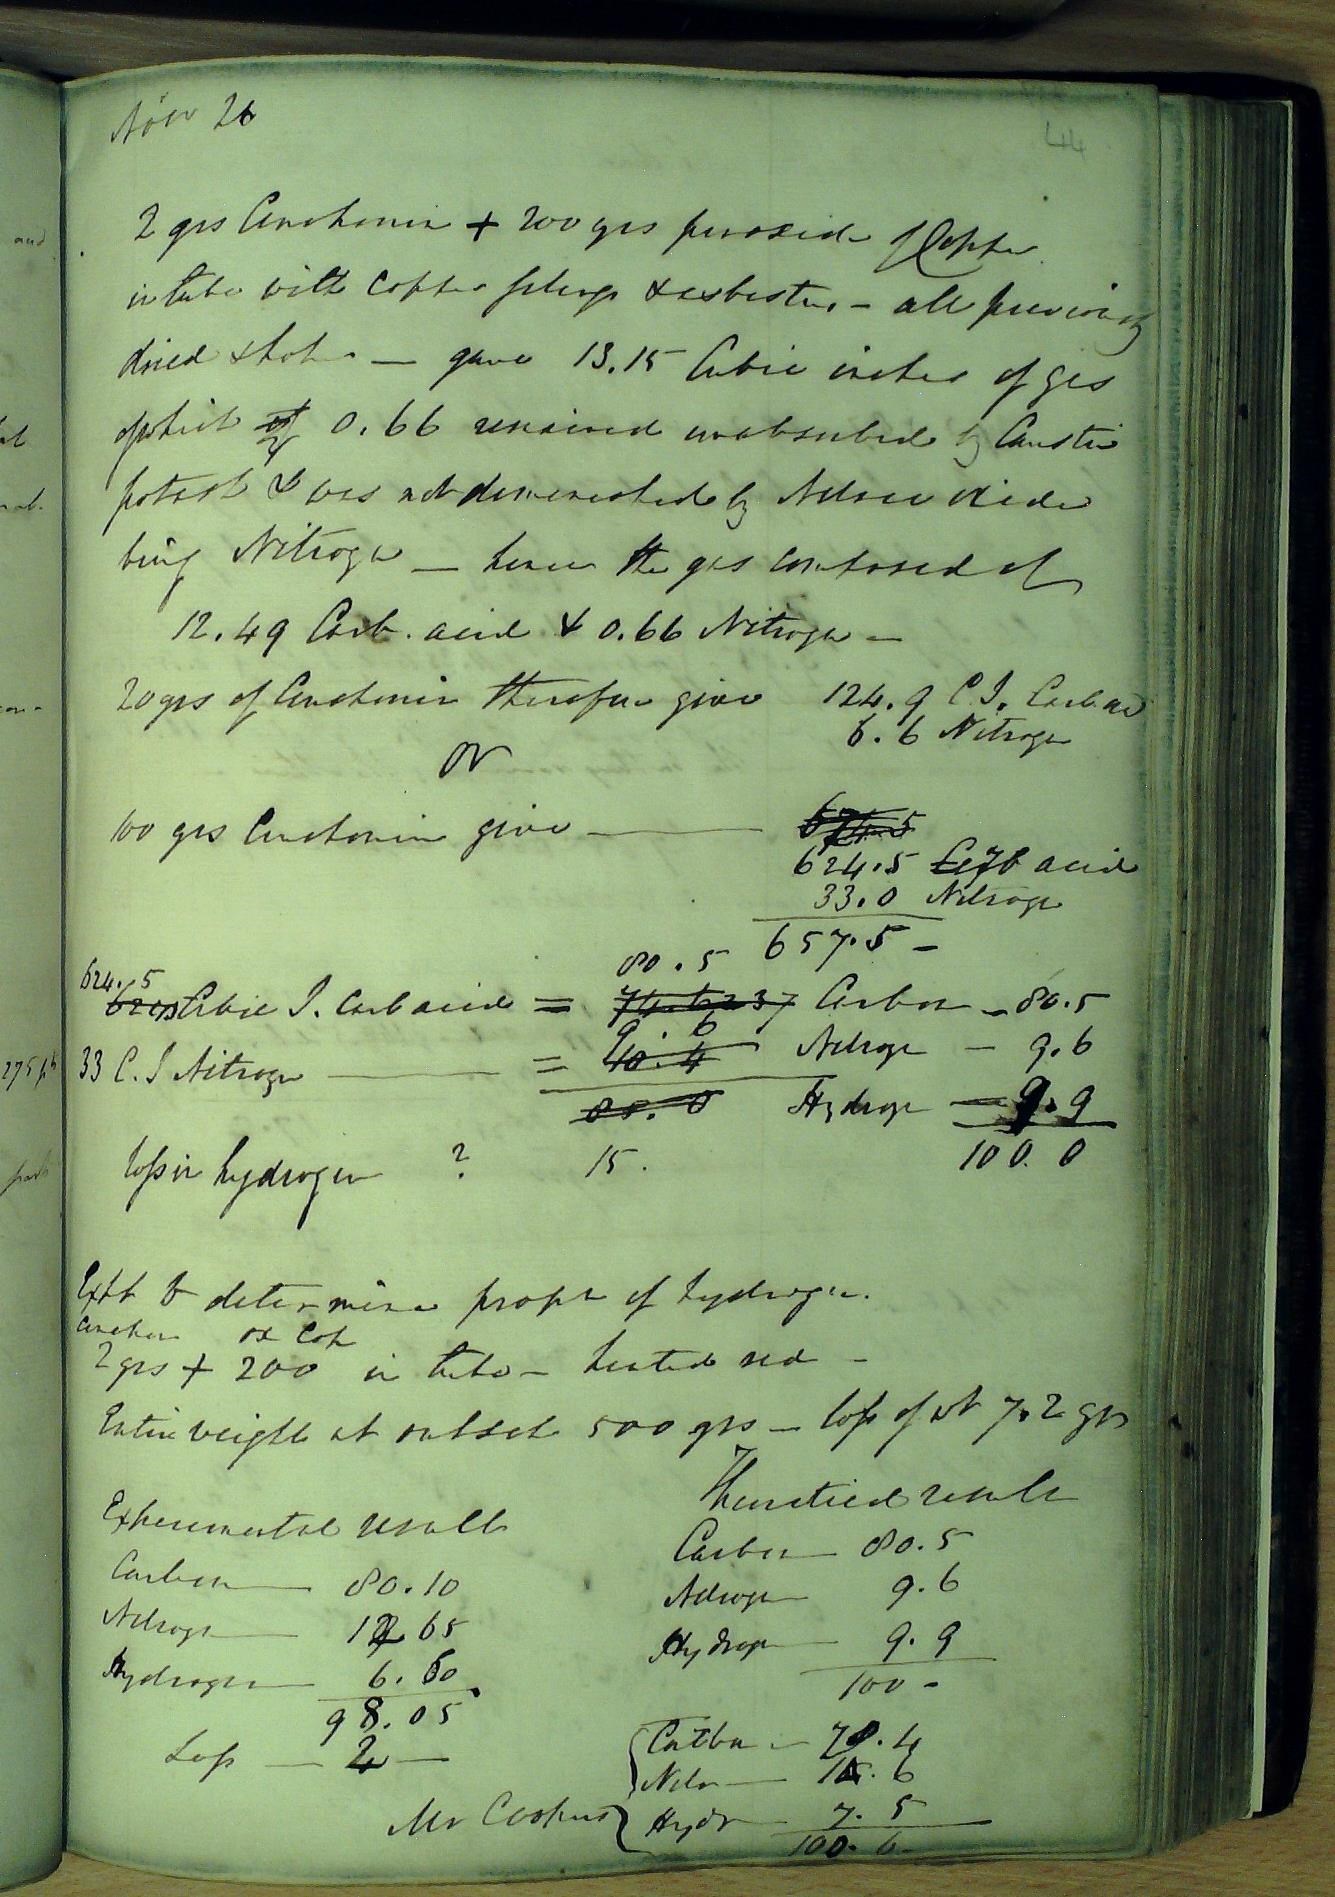 Novr 26
44
2 grs Cinchonin + 200 grs peroxide of Copper
in tube with Copper filings & asbestus - all previously
dried & hot - gave 13.15 Cubic inches of gas
of which 0.66 remained unabsorbed by Caustic
potash & was not diminished by Nitrous oxide
being Nitrogen - hence the gas composed of
12.49 Carb. acid & 0.66 Nitrogen -
20 grs of Cinchonin therefore give 124.9 C.I. Carb. ac
6.6 Nitrogen
or
100 grs Cinchonin give
624.5 Carb acid
33.0 Nitrogen
657.5 -
80.5
624.5
Cubic I. Carb acid = Carbon - 80.5
9.6
33 C.I Nitrogen = 10.4 Nitrogen - 9.6
Hydrogen - 9.9
100.0
loss in hydrogen ? 15.
Expt to determine propn of hydrogen.
Cinchon ox Cop
2 grs + 200 in tube - heated red -
Entire weight at outset 500 grs - loss of wt 7.2 grs
Experimental result
Carbon 80.10
Nitrogen 65
Hydrogen 6.60
98.05
Loss - 2 -
Theoretical result
Carbon 80.5
Nitrogen 9.6
Hydrogen 9.9
100 -
Carbon - .4
Nitr - .6
Mr Coopers Hydr - 7.5
100.6